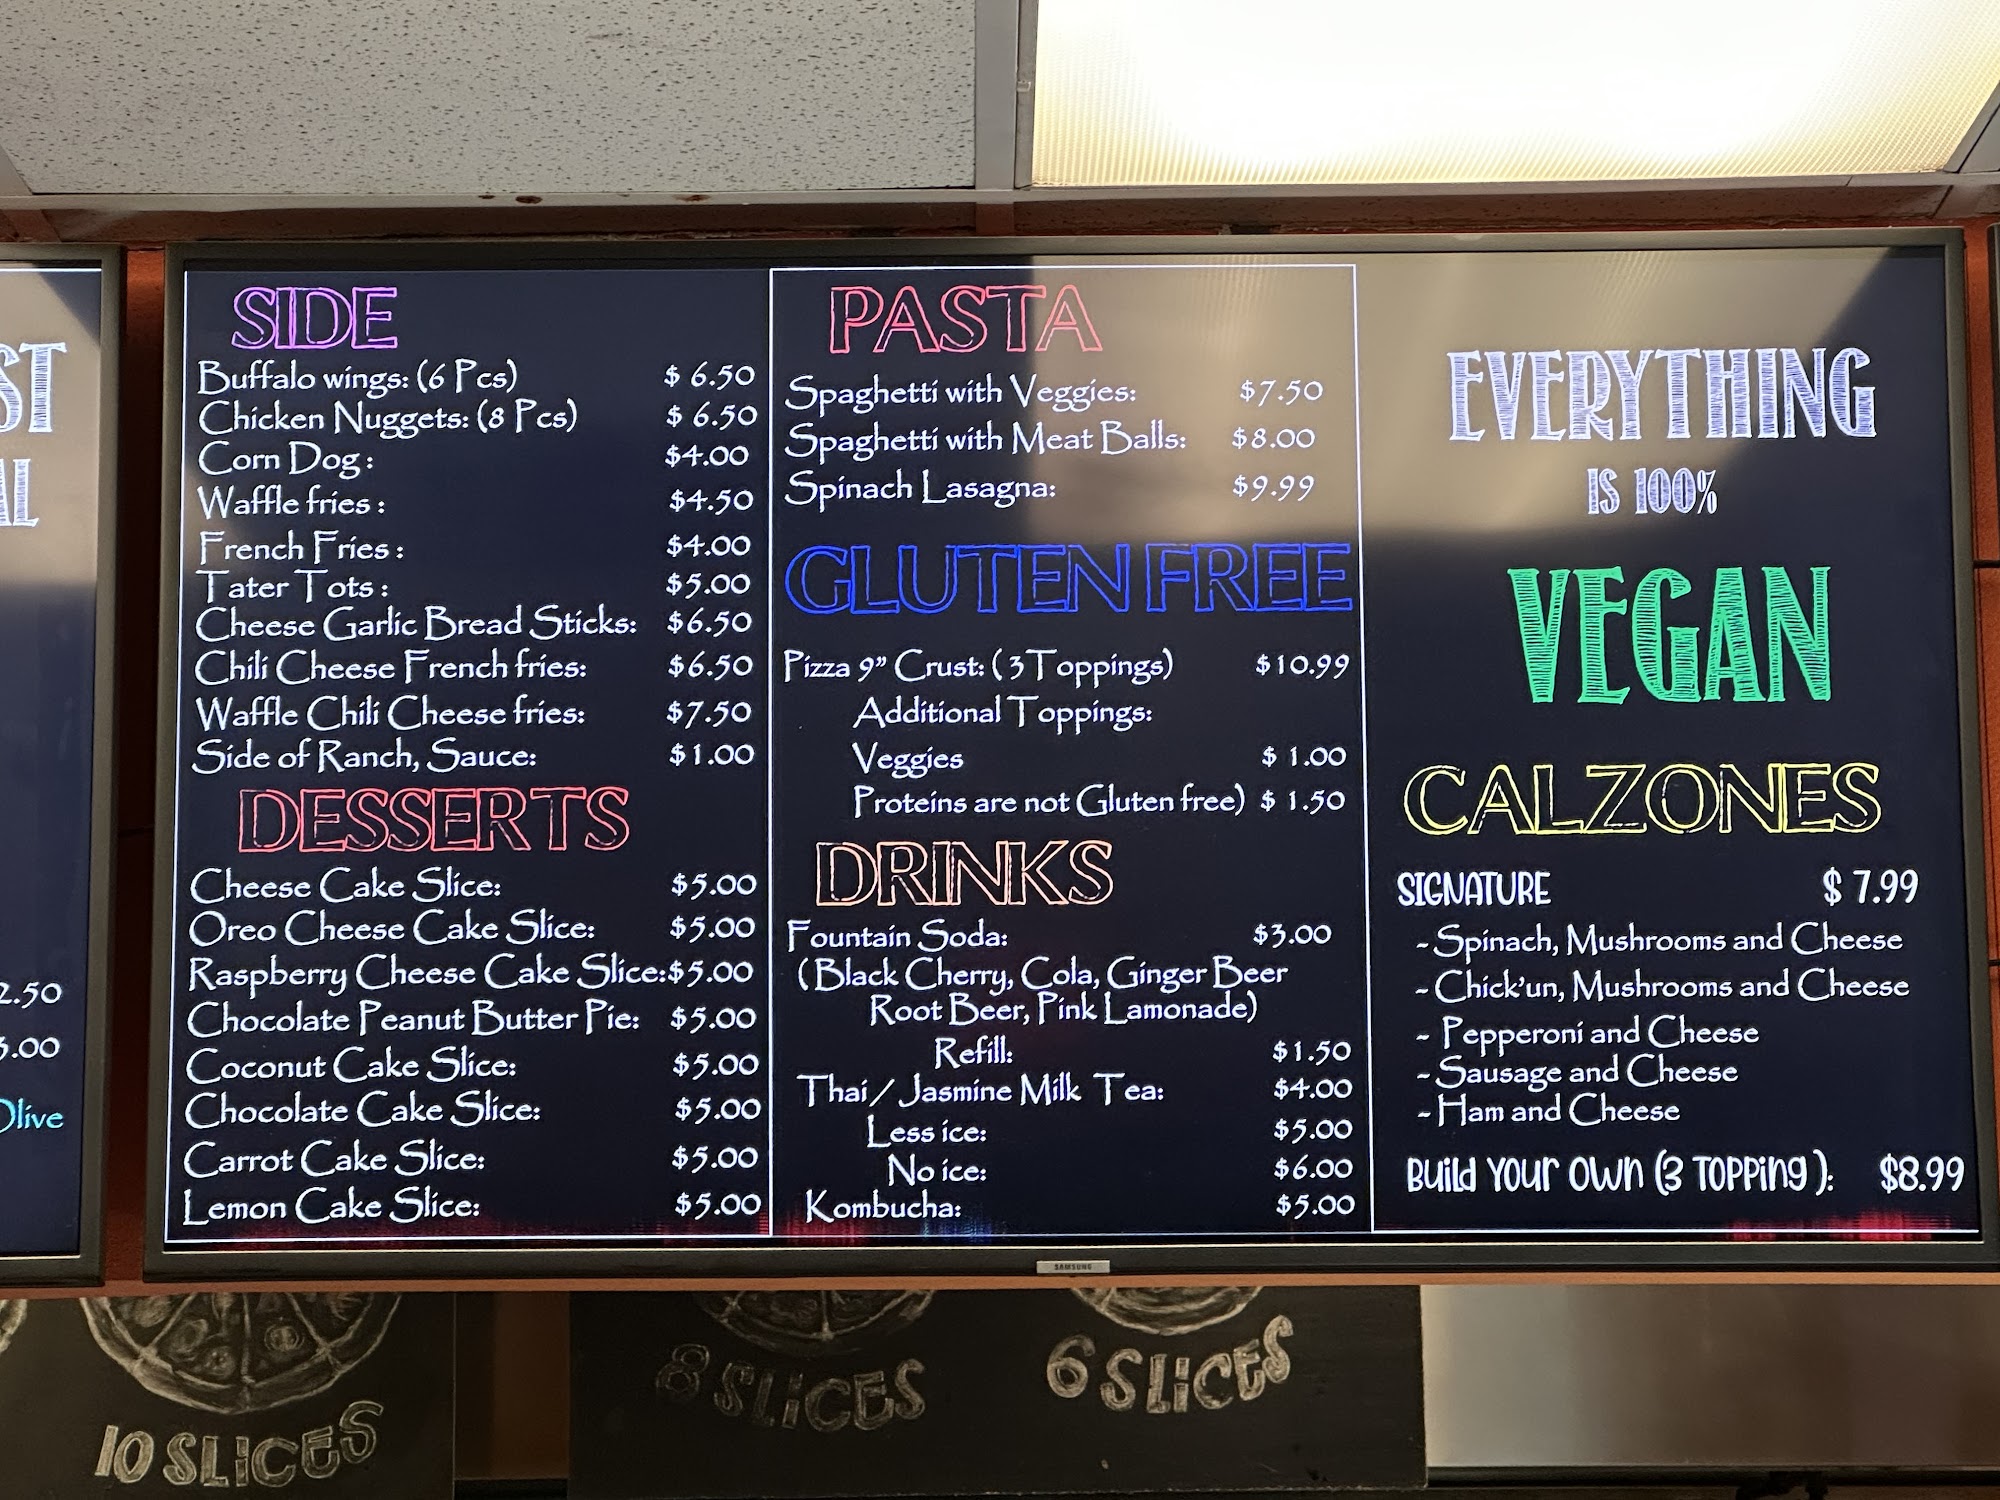 ST
AL
2.50
3.00
Olive
SIDE
Buffalo wings: (6 Pcs) $ 6.50
Chicken Nuggets: (8 Pcs) $ 6.50
Corn Dog : $4.00
Waffle fries : $4.50
French Fries : $4.00
Tater Tots : $5.00
Cheese Garlic Bread Sticks: $6.50
Chili Cheese French fries: $6.50
Waffle Chili Cheese fries: $7.50
Side of Ranch, Sauce: $1.00
DESSERTS
Cheese Cake Slice: $5.00
Oreo Cheese Cake Slice: $5.00
Raspberry Cheese Cake Slice: $5.00
Chocolate Peanut Butter Pie: $5.00
Coconut Cake Slice: $5.00
Chocolate Cake Slice: $5.00
Carrot Cake Slice: $5.00
Lemon Cake Slice: $5.00
PASTA
Spaghetti with Veggies: $7.50
Spaghetti with Meat Balls: $8.00
Spinach Lasagna: $9.99
GLUTEN FREE
Pizza 9" Crust: ( 3 Toppings) $10.99
Additional Toppings:
Veggies $ 1.00
Proteins are not Gluten free) $ 1.50
DRINKS
Fountain Soda: $3.00
( Black Cherry, Cola, Ginger Beer
Root Beer, Pink Lamonade)
Refill: $1.50
Thai / Jasmine Milk Tea: $4.00
Less ice: $5.00
No ice: $6.00
Kombucha: $5.00
EVERYTHING
IS 100%
VEGAN
CALZONES
SIGNATURE $ 7.99
- Spinach, Mushrooms and Cheese
- Chick'un, Mushrooms and Cheese
- Pepperoni and Cheese
- Sausage and Cheese
- Ham and Cheese
Build Your Own (3 Topping ): $8.99
SAMSUNG
10 SLICES
8 SLICES
6 SLICES